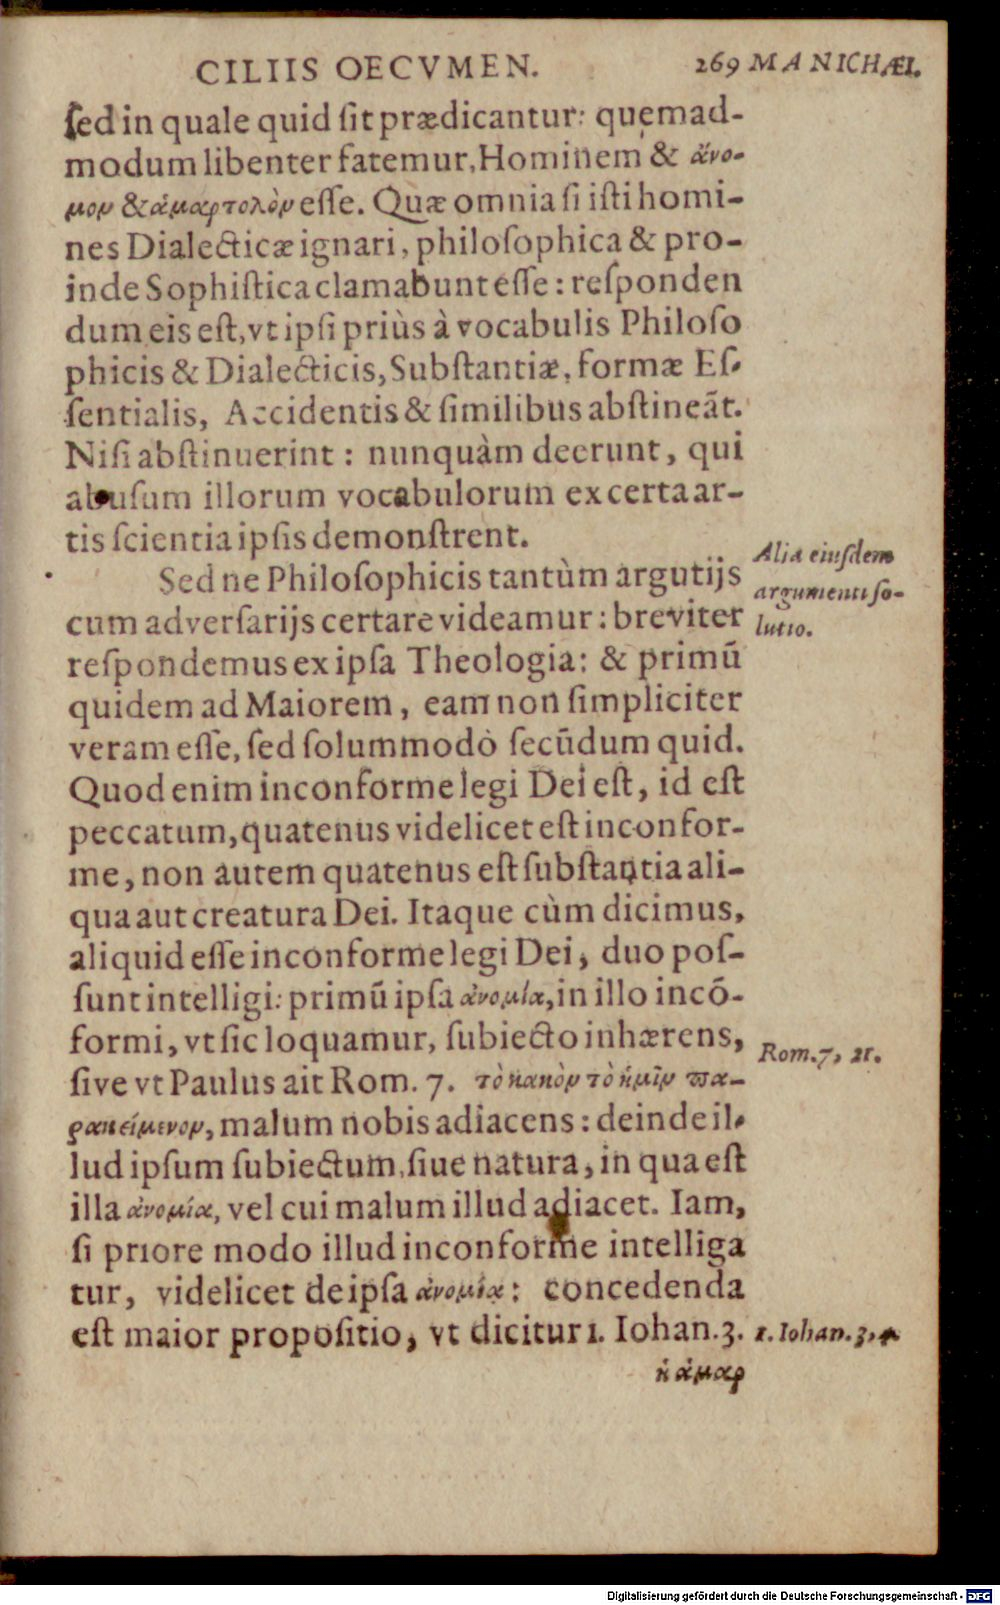 CILIIS OECVMEN. 269 MANICHÆI.
ſed in quale quid ſit prædicantur: quemad-
modum libenter fatemur, Hominem & ἄνο-
μον & ἁμαρτολὸν eſſe. Quæ omnia ſi iſti homi-
nes Dialecticæ ignari, philoſophica & pro-
inde Sophiſtica clamabunt eſſe: reſponden
dum eis eſt, vt ipſi priùs à vocabulis Philoſo
phicis & Dialecticis, Subſtantiæ, formæ Eſ-
ſentialis, Accidentis & ſimilibus abſtineãt.
Niſi abſtinuerint: nunquàm deerunt, qui
abuſum illorum vocabulorum ex certa ar-
tis ſcientia ipſis demonſtrent.
Sed ne Philoſophicis tantùm argutijs
cum adverſarijs certare videamur: breviter
reſpondemus ex ipſa Theologia: & primũ
quidem ad Maiorem, eam non ſimpliciter
veram eſſe, ſed ſolummodò ſecũdum quid.
Quod enim inconforme legi Dei eſt, id eſt
peccatum, quatenus videlicet eſt inconfor-
me, non autem quatenus eſt ſubſtantia ali-
qua aut creatura Dei. Itaque cùm dicimus,
aliquid eſſe inconforme legi Dei, duo poſ-
ſunt intelligi: primũ ipſa ἀνομία, in illo incõ-
formi, vt ſic loquamur, ſubiecto inhærens,
ſive vt Paulus ait Rom. 7. τὸ κακὸν τὸ ἡμῖν πα-
ρακείμενον, malum nobis adiacens: deinde il-
lud ipſum ſubiectum, ſiue natura, in qua eſt
illa ἀνομία, vel cui malum illud adiacet. Iam,
ſi priore modo illud inconforme intelliga
tur, videlicet de ipſa ἀνομίᾳ: concedenda
eſt maior propoſitio, vt dicitur 1. Iohan. 3.
ἡ ἁμαρ
Alia eiuſdem
argumenti ſo-
lutio.
Rom. 7, 21.
1. Iohan. 3, 4
Digitalisierung gefördert durch die Deutsche Forschungsgemeinschaft - DFG